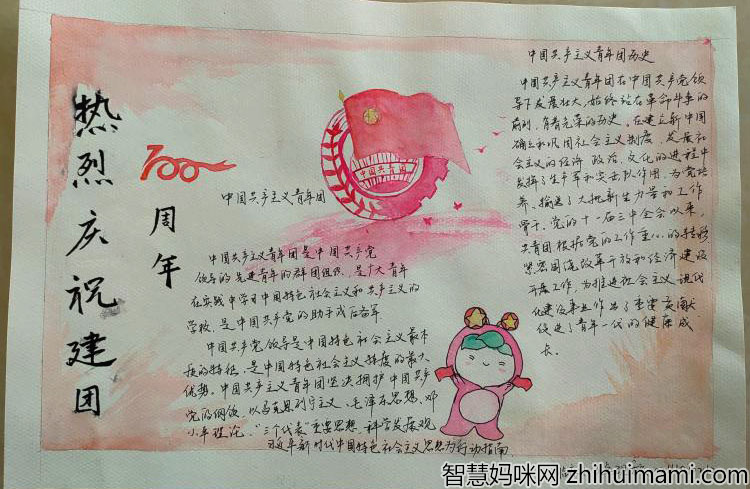 热烈庆祝建团
100
周年
中国共产主义青年团
中国共青团
中国共产主义青年团是中国共产党
领导的先进青年的群团组织,是广大青年
在实践中学习中国特色社会主义和共产主义的
学校,是中国共产党的助手或后备军
中国共产党领导是中国特色社会主义最本
质的特征,是中国特色社会主义制度的最大
优势。中国共产主义青年团坚决拥护中国共产
党的纲领,以马克思列宁主义、毛泽东思想、邓
小平理论、“三个代表”重要思想,科学发展观
习近平新时代中国特色社会主义思想为行动指南
中国共产主义青年团历史
中国共产主义青年团在中国共产党领
导下发展壮大,始终站在革命斗争的
前列,有着光荣的历史。在建立新中国
确立和巩固社会主义制度,发展社
会主义的经济 政治、文化的进程中
发挥了生力军和突击队作用,为党培
养、输送了大批新生力量和工作
骨干。党的十一届三中全会以来,
共青团根据党的工作重心的转移
紧密围绕改革开放和经济建设
开展工作,为推进社会主义现代
化建设事业作出了重要贡献
促进了青年一代的健康成
长。
智慧妈咪网 zhihuimami.com